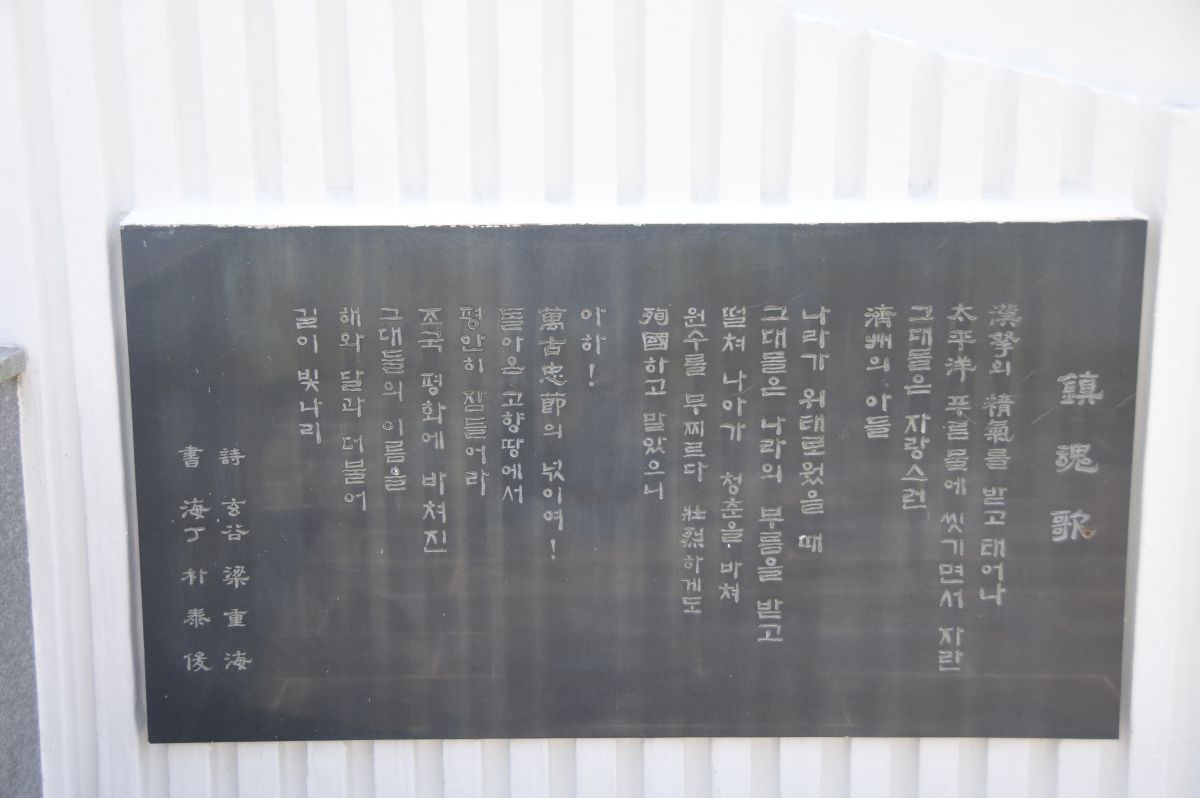 鎭魂歌
漢拏의 精氣를 받고 태어나
太平洋 푸른 물에 씻기면서 자란
그대들은 자랑스런
濟州의 아들
나라가 위태로웠을 때
그대들은 나라의 부름을 받고
떨쳐 나아가 청춘을 바쳐
원수를 무찌르다 壯烈하게도
殉國하고 말았으니
아하!
萬古忠節의 넋이여!
돌아온 고향땅에서
평안히 잠들어라
조국 평화에 바쳐진
그대들의 이름을
해와 달과 더불어
길이 빛나리
詩 玄谷 梁重海
書 海丁 朴泰俊